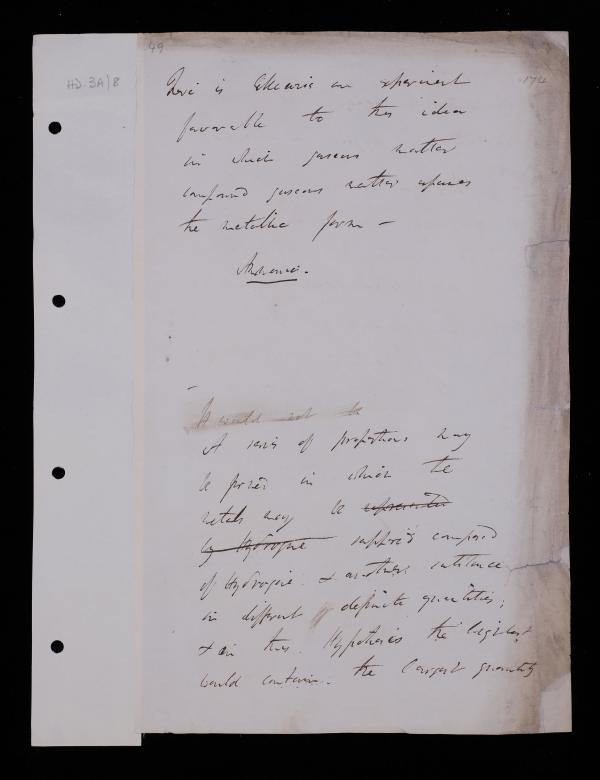 49
HD. 3A/8
174
There is likewise an experiment
favorable to this idea
in which gaseous matter
compound gaseous matter assumes
the metallic form -
Ammonia.
It would not be
A series of proportions may
be formed in which the
metals may be represented
by Hydrogene supposed composed
of Hydrogene. & another substance
in different definite quantities;
& in this Hypothesis the lightest
would contain the largest quantity